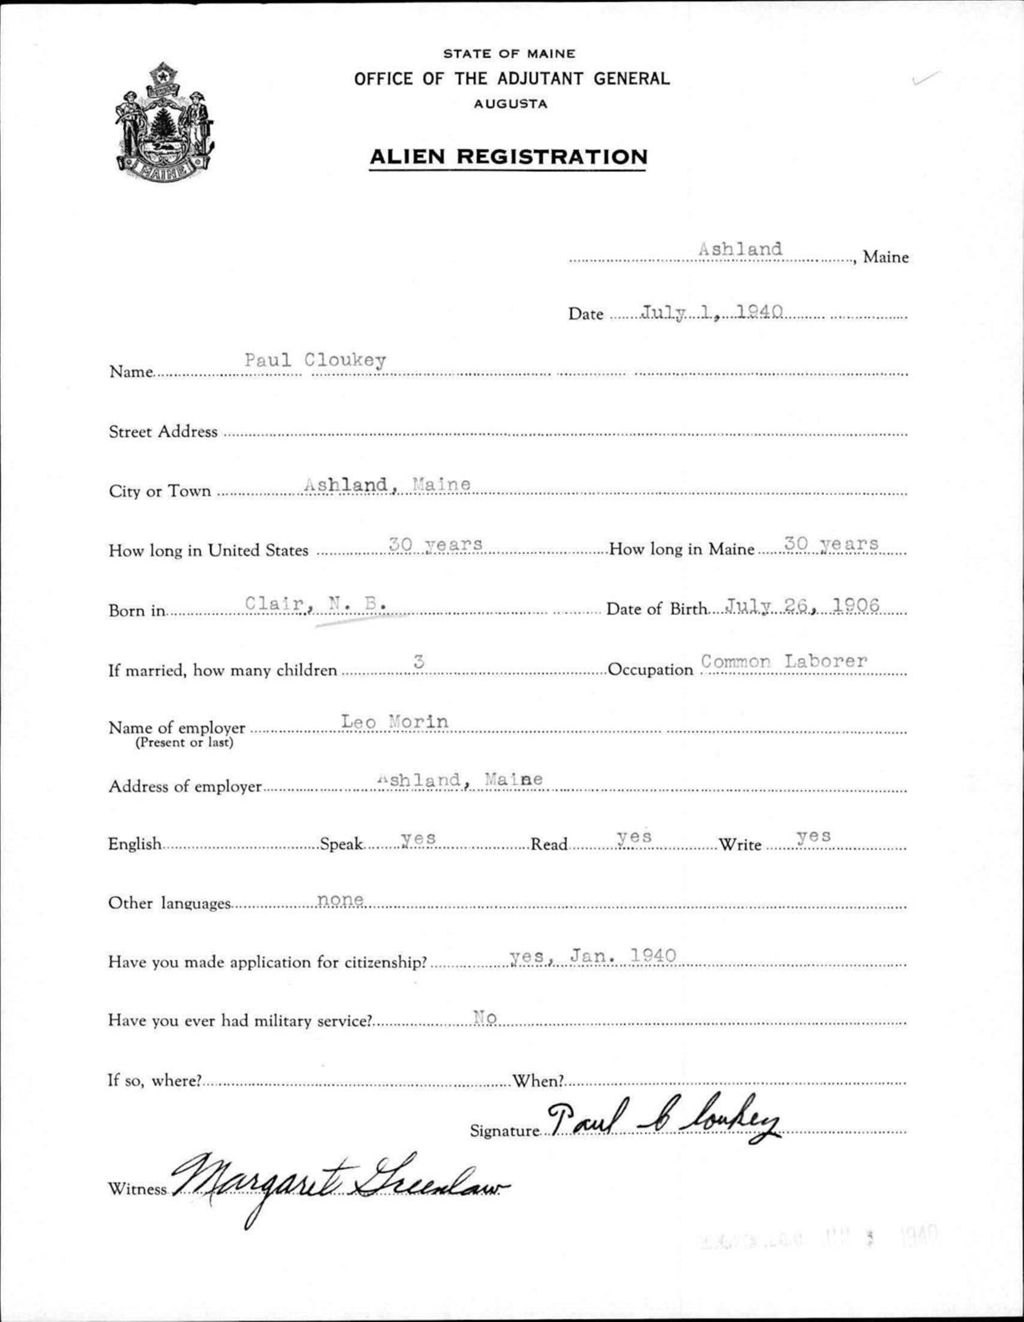 STATE OF MAINE
OFFICE OF THE ADJUTANT GENERAL
AUGUSTA
ALIEN REGISTRATION
MAINE
Ashland, Maine
Date July 1, 1940
Name Paul Cloukey
Street Address
City or Town Ashland, Maine
How long in United States 30 years How long in Maine 30 years
Born in Clair, N. B. Date of Birth July 26, 1906
If married, how many children 3 Occupation Common Laborer
Name of employer Leo Morin
(Present or last)
Address of employer Ashland, Maine
English Speak yes Read yes Write yes
Other languages none
Have you made application for citizenship? yes, Jan. 1940
Have you ever had military service? No
If so, where? When?
Signature Paul Cloukey
Witness Margaret Greenlaw
1940